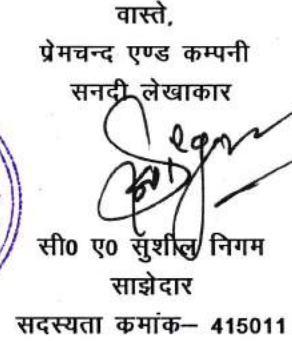 वास्ते,
प्रेमचन्द एण्ड कम्पनी
सनदी लेखाकार
सी0 ए0 सुशील निगम
साझेदार
सदस्यता कमांक– 415011